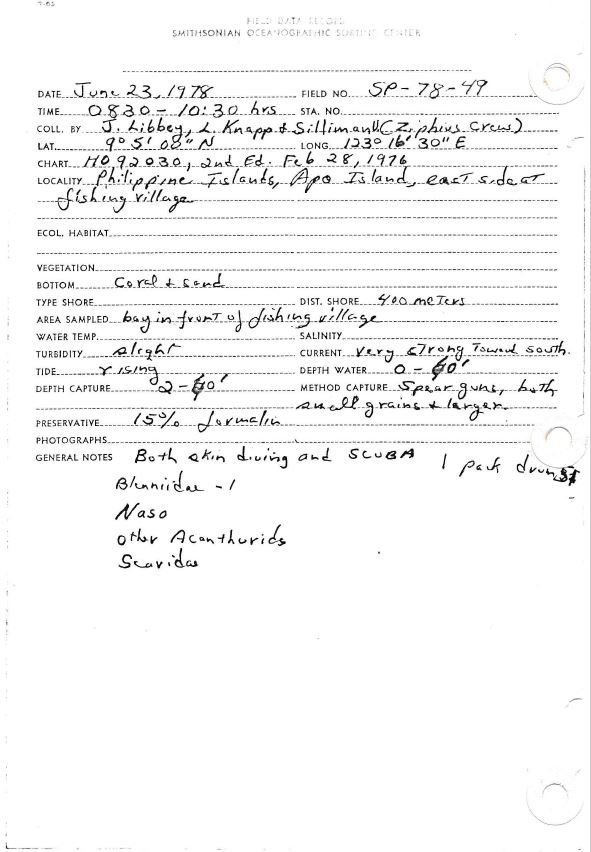 FIELD DATA RECORD
SMITHSONIAN OCEANOGRAPHIC SORTING CENTER
DATE June 23, 1978 FIELD NO. SP-78-49
TIME 0830-10:30 hrs STA. NO.
COLL. BY J. Libbey, L. Knapp & Silliman U (Ziphius Crew)
LAT. 9° 5' 08" N LONG. 123° 16' 30" E
CHART HO 92030, 2nd Ed. Feb 28, 1976
LOCALITY Philippine Islands, Apo Island, east side at
fishing village
ECOL. HABITAT
VEGETATION
BOTTOM Coral & sand
TYPE SHORE DIST. SHORE 400 meters
AREA SAMPLED bay in front of fishing village
WATER TEMP. SALINITY
TURBIDITY slight CURRENT very strong toward south.
TIDE rising DEPTH WATER 0-60'
DEPTH CAPTURE 2-60' METHOD CAPTURE Spear guns, both
small grains & larger.
PRESERVATIVE 15% formalin
PHOTOGRAPHS
GENERAL NOTES Both skin diving and SCUBA 1 pack drum
Blenniidae - 1
Naso
other Acanthurids
Scaridae